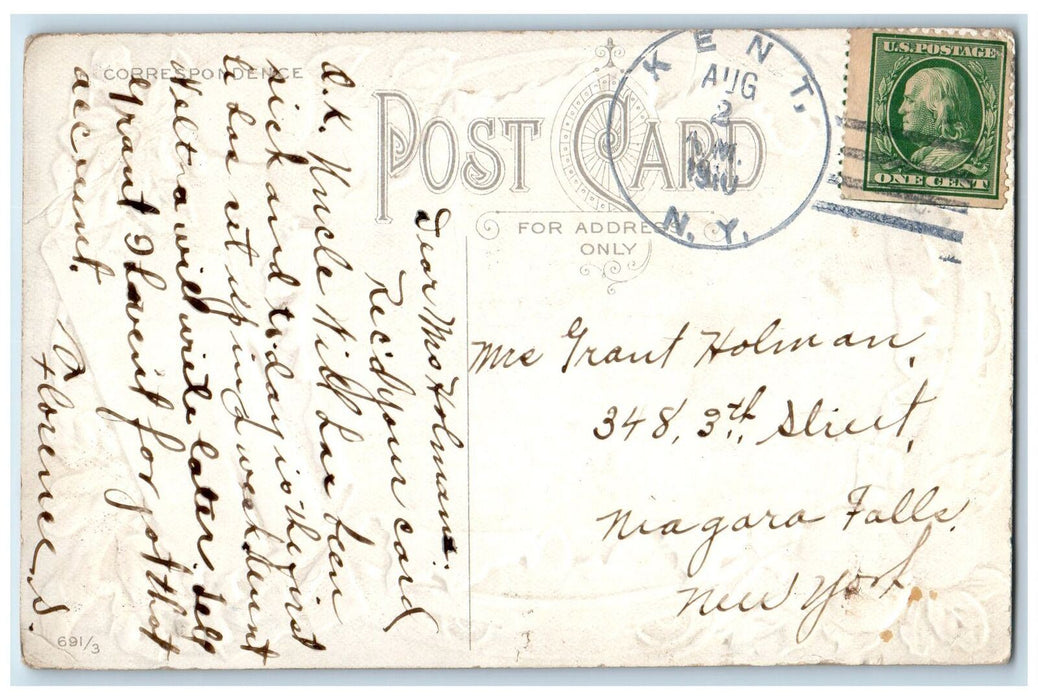 CORRESPONDENCE
POST CARD
FOR ADDRESS
ONLY
KENT,
AUG
2
M.
1910
N.Y.
U.S. POSTAGE
ONE CENT
Dear Mrs Holman:
Rec'd your card
O.K. Uncle Nill has been
sick and to-day is the first
to has set up in a week. Aunt
a while write later. Tell
Grant I haven't forgot that
account.
Florence S.
Mrs Grant Holman,
348, 3th, Street,
Niagara Falls.
New York
691/3